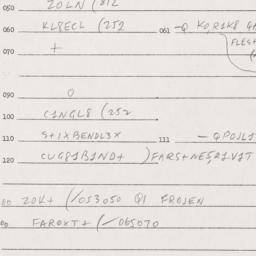 050 ZOLN (812
060 KL8ECL (252 061 -Q KOR1K8
FLES+
070 +
090 O
100 C1NGL8 (252
110 S+1XBENDL3X 111 - QPOJL1
120 CUG81B1ND+ )FARS+NE
ZOK+ (/053050 Q1 FROJEN
FAROXT+ (/065070